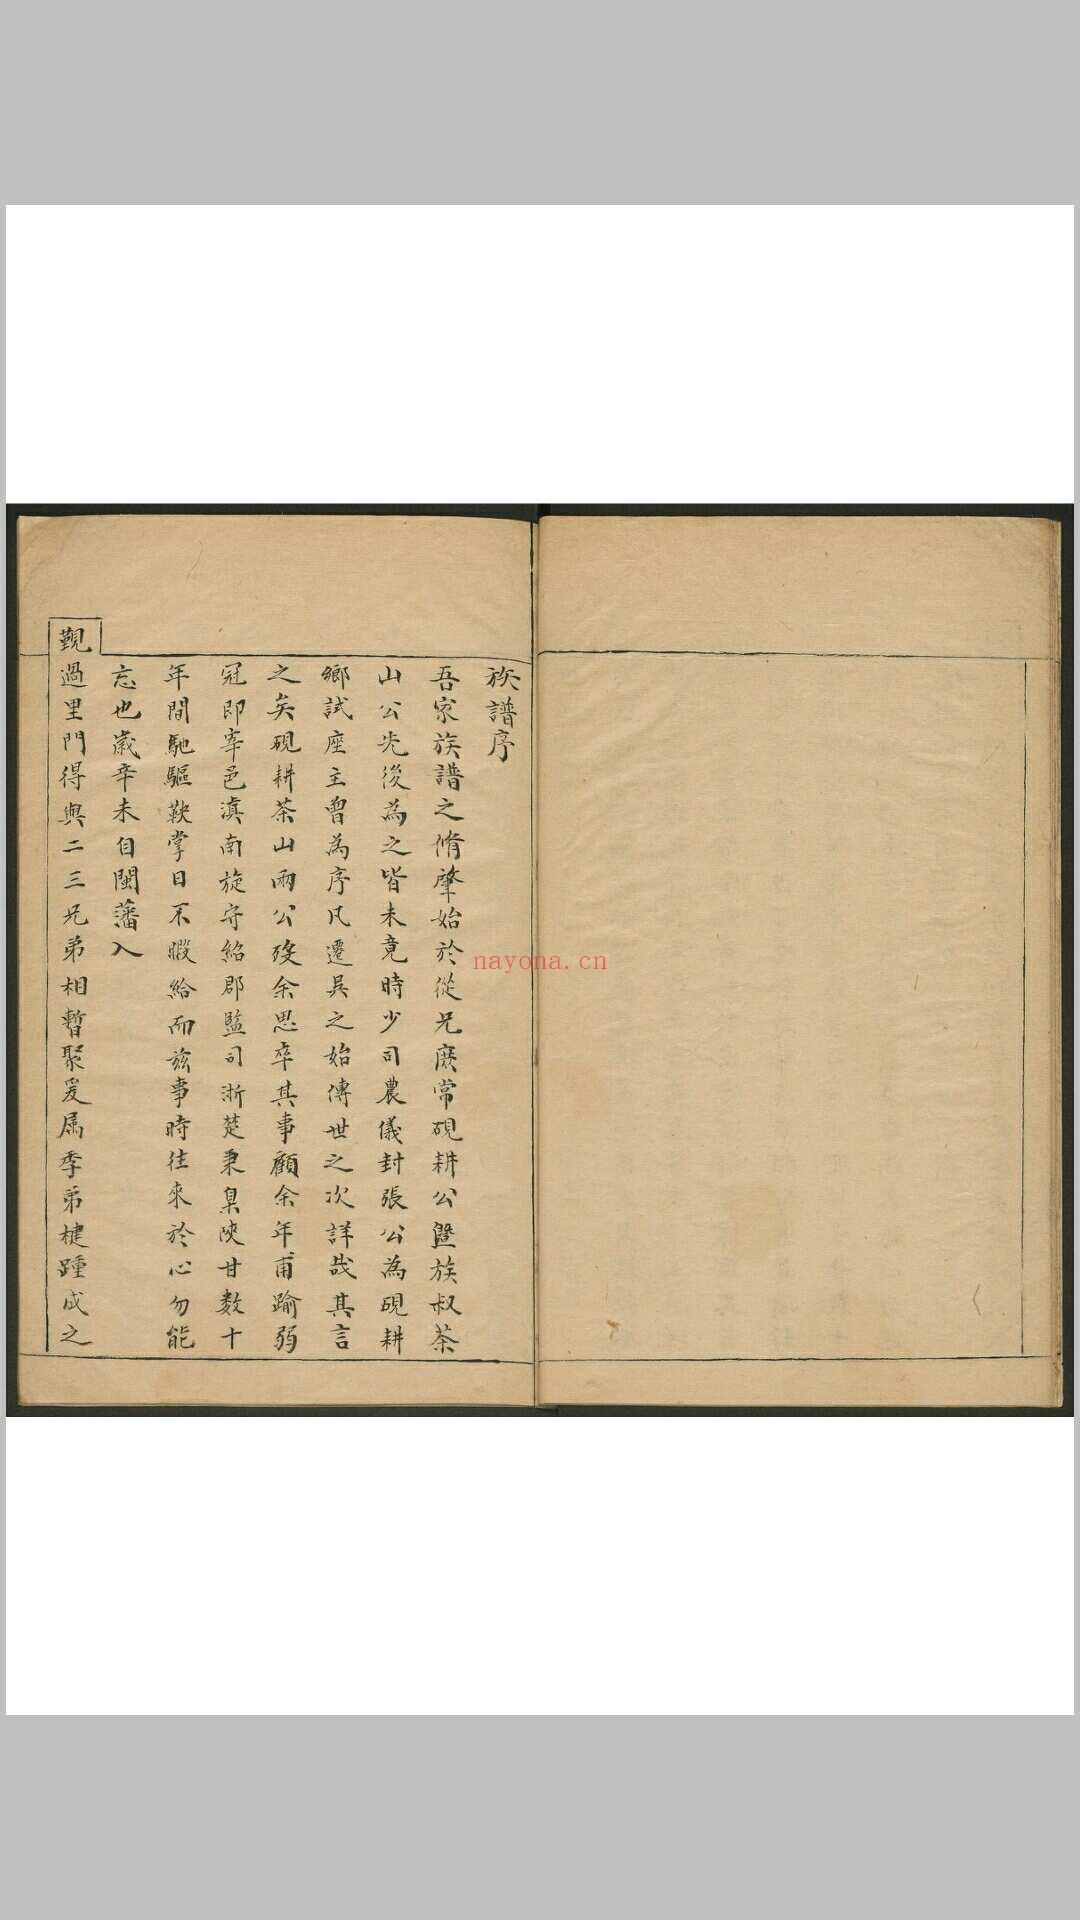 族譜序
吾家族譜之脩肇始於從兄庶常硯耕公暨族叔茶
山公先後為之皆未竟時少司農儀封張公為硯耕
鄉試座主曾為序凡遷吳之始傳世之次詳哉其言
之矣硯耕茶山兩公歿余思卒其事顧余年甫踰弱
冠即宰邑滇南旋守紹郡監司浙楚秉臬陝甘數十
年間馳驅鞅掌日不暇給而茲事時往來於心勿能
忘也歲辛未自閩藩入
覲過里門得與二三兄弟相暫聚爰屬季弟楗踵成之
nayona.cn